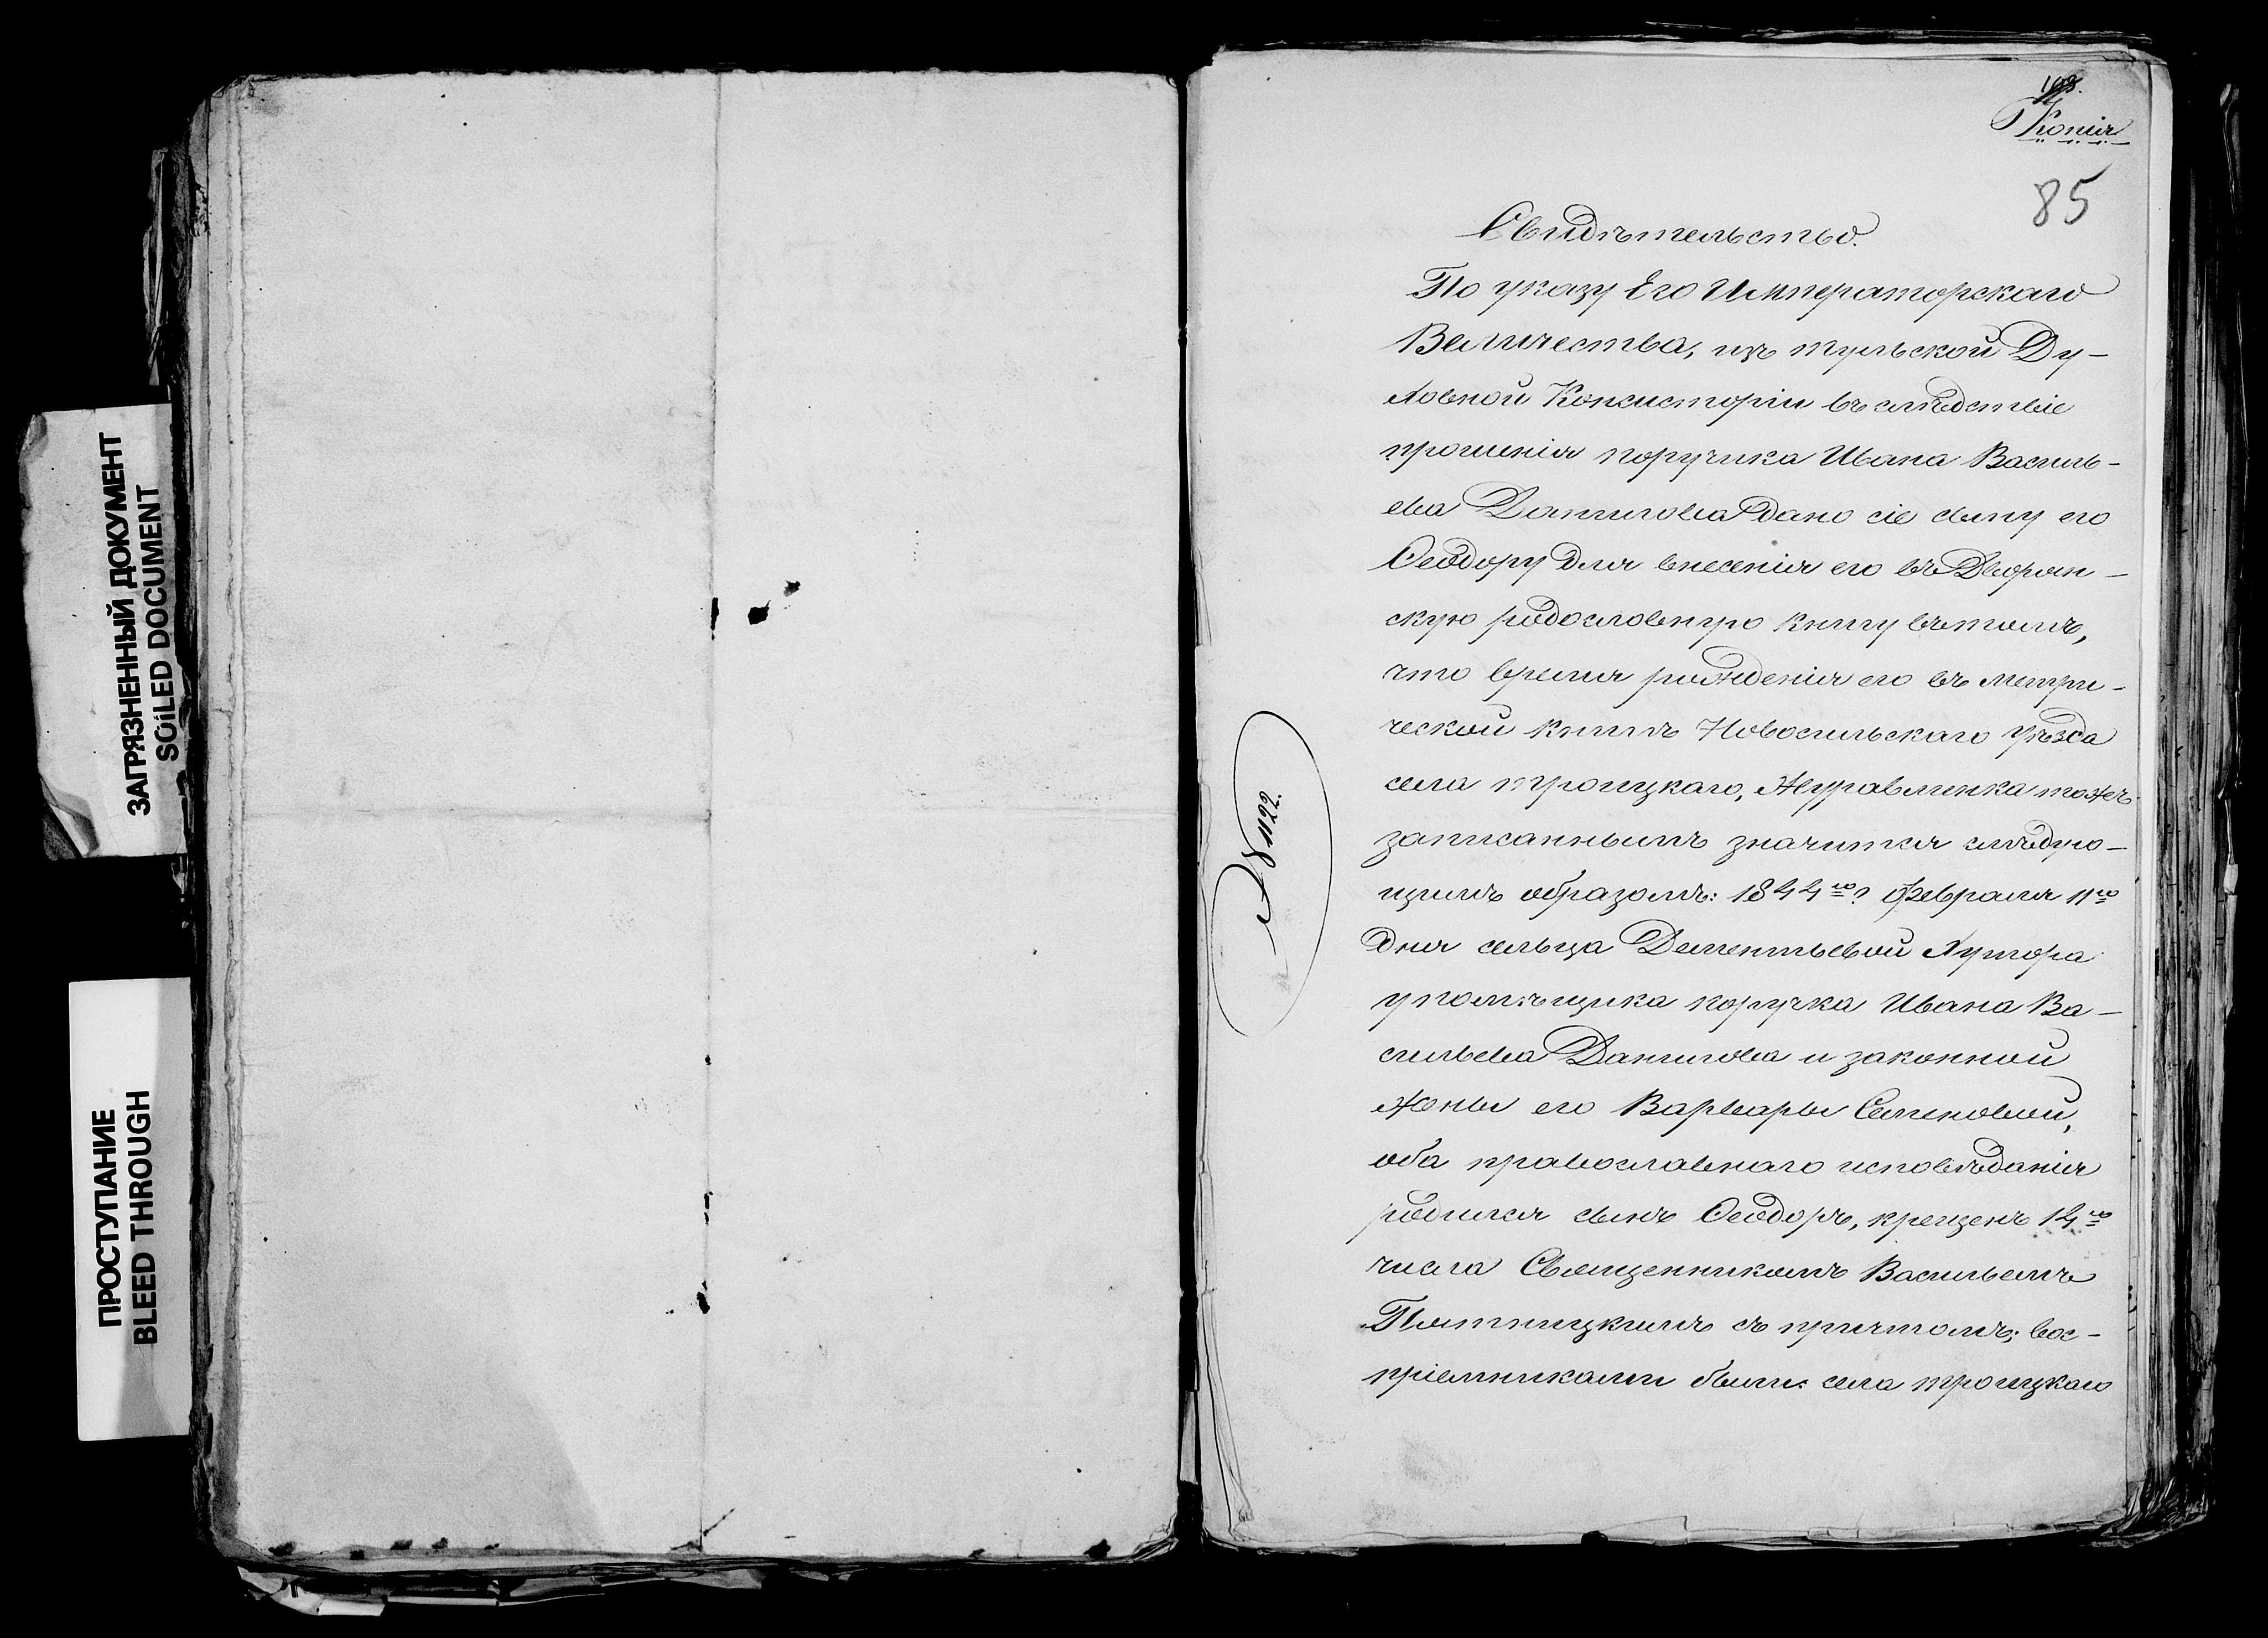 ЗАГРЯЗНЕННЫЙ ДОКУМЕНТ
SOILED DOCUMENT
ПРОСТУПАНИЕ
BLEED THROUGH
Копія
85
Свидѣтельство.
По указу Его Императорскаго
Величества, изъ тульской Ду-
ховной Консисторіи въ слѣдствіе
прошенія поручика Ивана Василь-
ева Данилова дано сіе сыну его
Ѳеодору для внесенія его въ Дворян-
скую родословную книгу въ томъ,
что время рожденія его въ метри-
ческой книгѣ Новосильскаго уѣзда
села троицкаго, Журавлинка тожъ
записаннымъ значится слѣдую-
щимъ образомъ: 1844го г. Февраля 11го
дня сельца Дементьевой Хутора
у помѣщика поручка Ивана Ва-
сильева Данилова и законной
жены его Варвары Семеновой,
оба православнаго исповѣданія
родился сынъ Ѳеодоръ, крещенъ 14го
числа Священникомъ Васильемъ
Пятницкимъ съ причтомъ; вос-
пріемниками были: села троицкаго
№ 1122